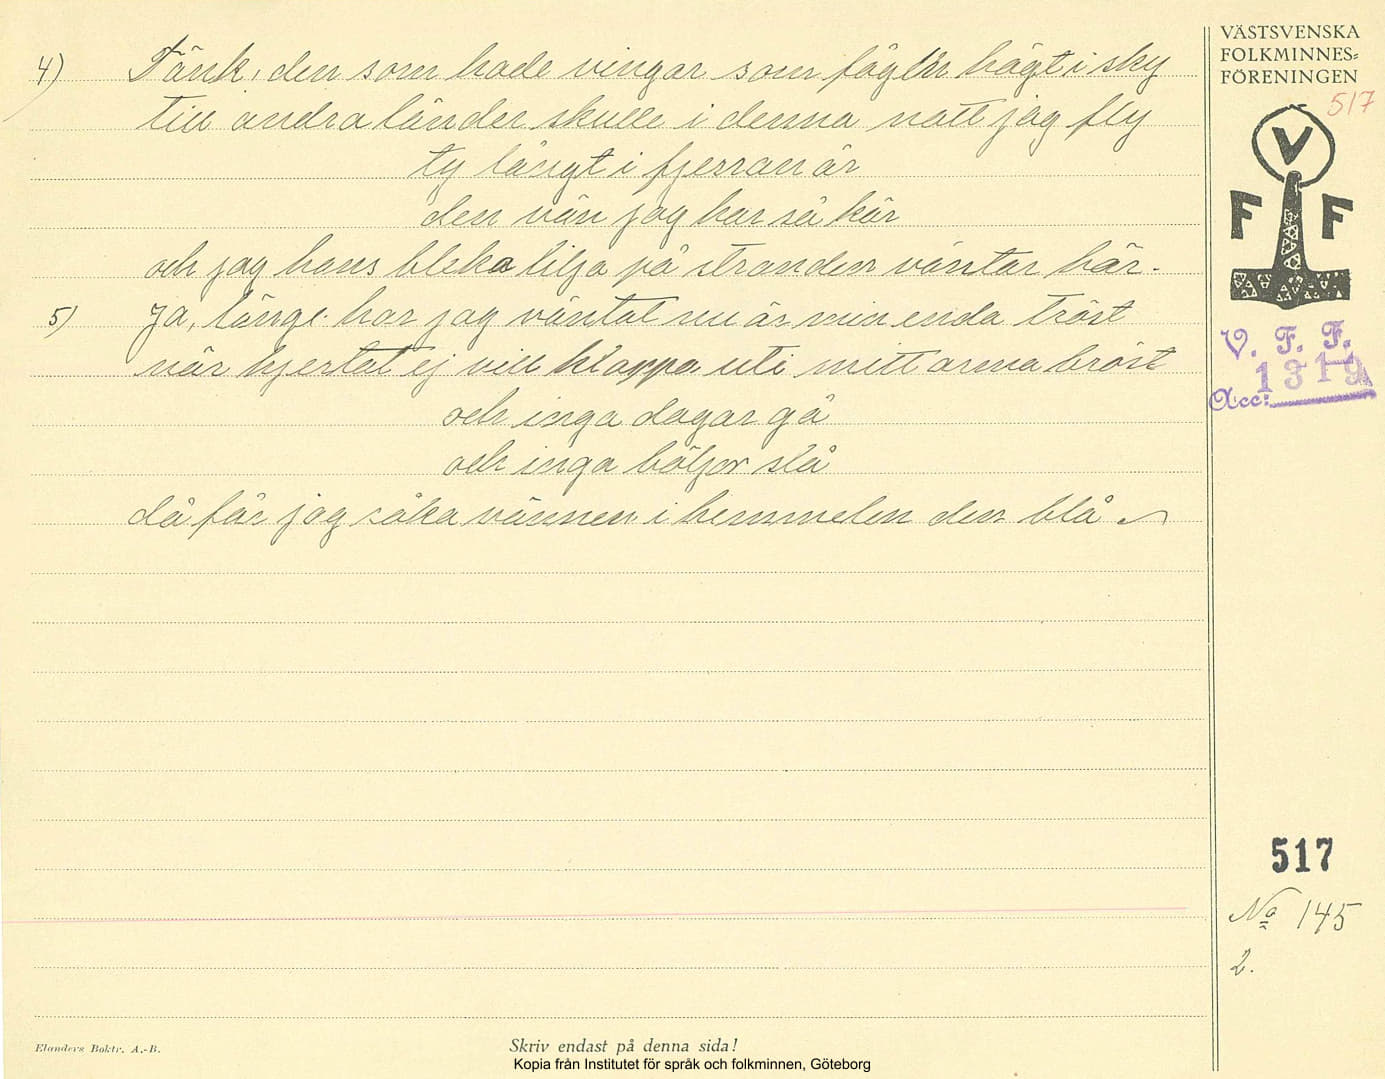 4) Tänk, den som hade vingar som fågeln högt i sky
till andra länder skulle i denna natt jag fly
ty långt i fjerran är
den vän jag har så kär
och jag hans bleka lilja på stranden väntar här.
5) Ja, länge har jag väntat nu är min enda tröst
när hjertat ej vill klappa uti mitt arma bröst
och inga dagar gå
och inga böljor slå
då får jag söka vännen i hemmelen den blå
VÄSTSVENSKA
FOLKMINNES-
FÖRENINGEN
517
V
F F
V. F. F.
1319
Acc:
517
No 145
2.
Elanders Boktr. A.-B.
Skriv endast på denna sida!
Kopia från Institutet för språk och folkminnen, Göteborg